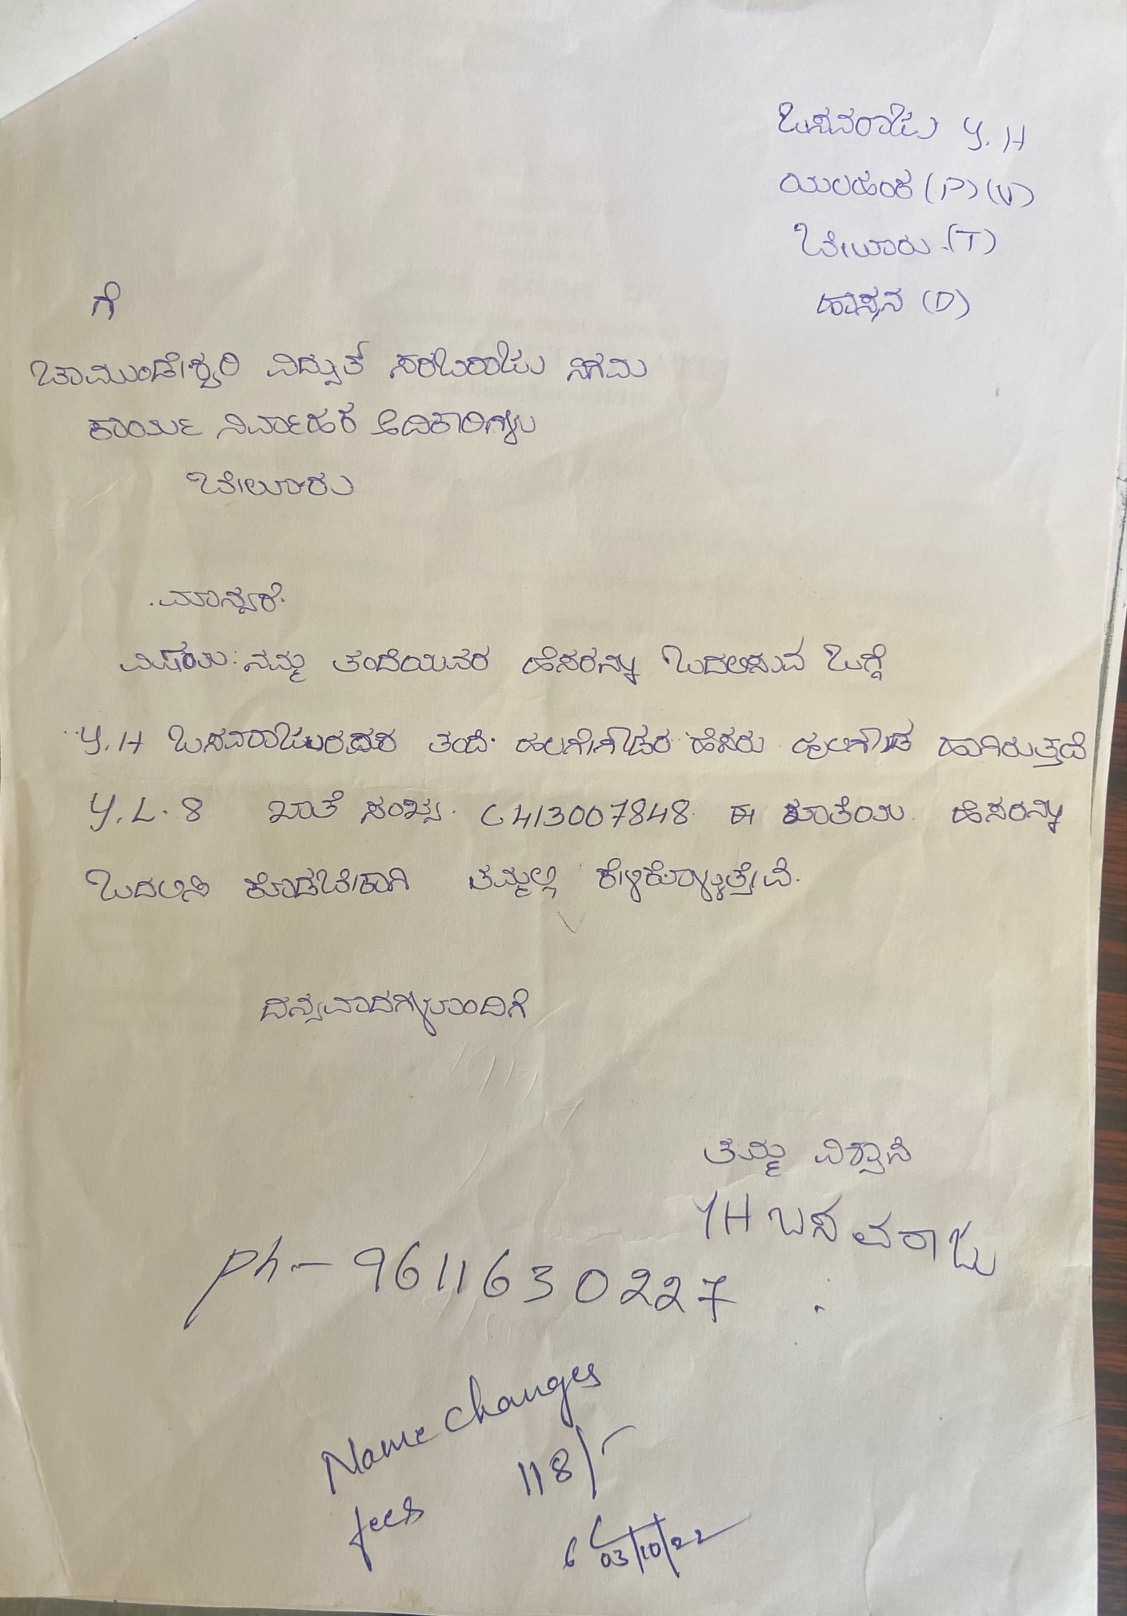 ಬಸವರಾಜು Y. H
ಯಲಹಂಕ (P) (V)
ಬೇಲೂರು (T)
ಹಾಸನ (D)
ಗೆ
ಚಾಮುಂಡೇಶ್ವರಿ ವಿದ್ಯುತ್ ಸರಬರಾಜು ನಿಗಮ
ಕಾರ್ಯ ನಿರ್ವಾಹಕ ಅದಿಕಾರಿಗಳು
ಬೇಲೂರು
ಮಾನ್ಯರೆ
ವಿಷಯ: ನಮ್ಮ ತಂದೆಯವರ ಹೆಸರನ್ನು ಬದಲಿಸುವ ಬಗ್ಗೆ
Y. H ಬಸವರಾಜುರವರ ತಂದೆ ಹಲಗೇಗೌಡರ ಹೆಸರು ಹಾಗಿರುತ್ತದೆ
Y. L. 8 ಖಾತೆ ಸಂಖ್ಯೆ. C413007848 ಈ ಖಾತೆಯ ಹೆಸರನ್ನು
ಬದಲಿಸಿ ಕೊಡಬೇಕಾಗಿ ತಮ್ಮಲ್ಲಿ ಕೇಳಿಕೊಳ್ಳುತ್ತೇವೆ.
ದನ್ಯವಾದಗಳೊಂದಿಗೆ
ತಮ್ಮ ವಿಶ್ವಾಸಿ
YH ಬಸವರಾಜು
Ph - 9611630227
Name changes
fees 118/-
03/10/22